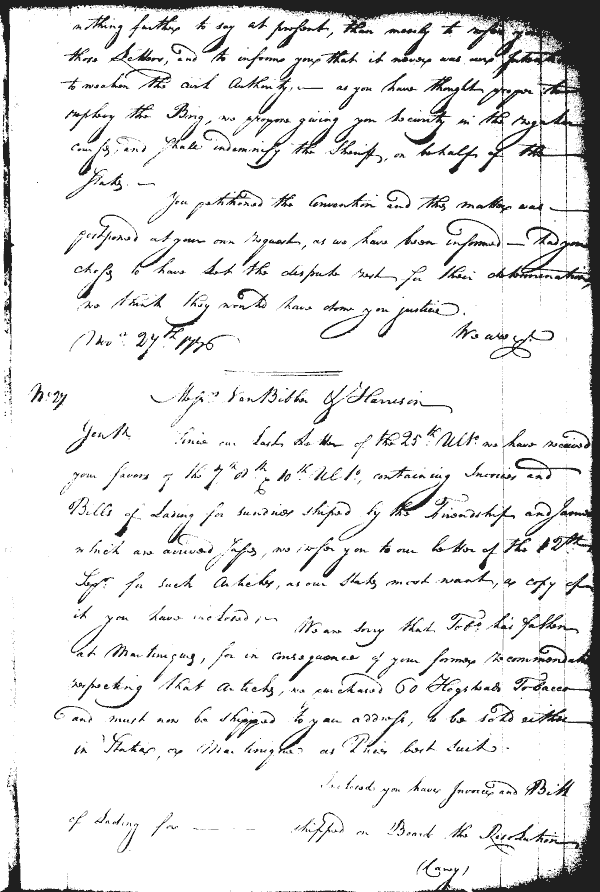 nothing further to say at present, than merely to refer you
those Letters, and to inform you that it never was our Intention
to weaken the civil Authority. — as you have thought proper to
replevy the Brig, we propose giving you security in the regular
course, and shall indemnify the Sheriff, on behalf of the
State. —
You petitioned the Convention and this matter was —
postponed at your own request, as we have been informed — Had you
chose to have let the dispute rest for their determination,
we think they would have done you justice.
We are &c.
Nov.r 27th 1776
No. 27
Mess.rs VanBibber & Harrison
Gent.n Since our Last Letter of the 25th Ult.o we have received
your favors of the 7th 8th & 10th Ult.o, containing Invoices and
Bills of Lading for sundries shiped by the Friendship and James
which are arrived safe, we refer you to our Letter of the 12th
Sep.r for such Articles, as our State most want, a copy of
it you have inclosed; — We are sorry that Tob.o has fallen
at Martinique, for in consequence of your former recommendation
respecting that Article, we purchased 60 Hogsheads Tobacco
and must now be shipped to your address, to be sold either
in Statia, or Martinique as Prices best suit.
Inclosed you have Invoice and Bill
of Lading for — — shipped on Board the Resolution
(Carey)